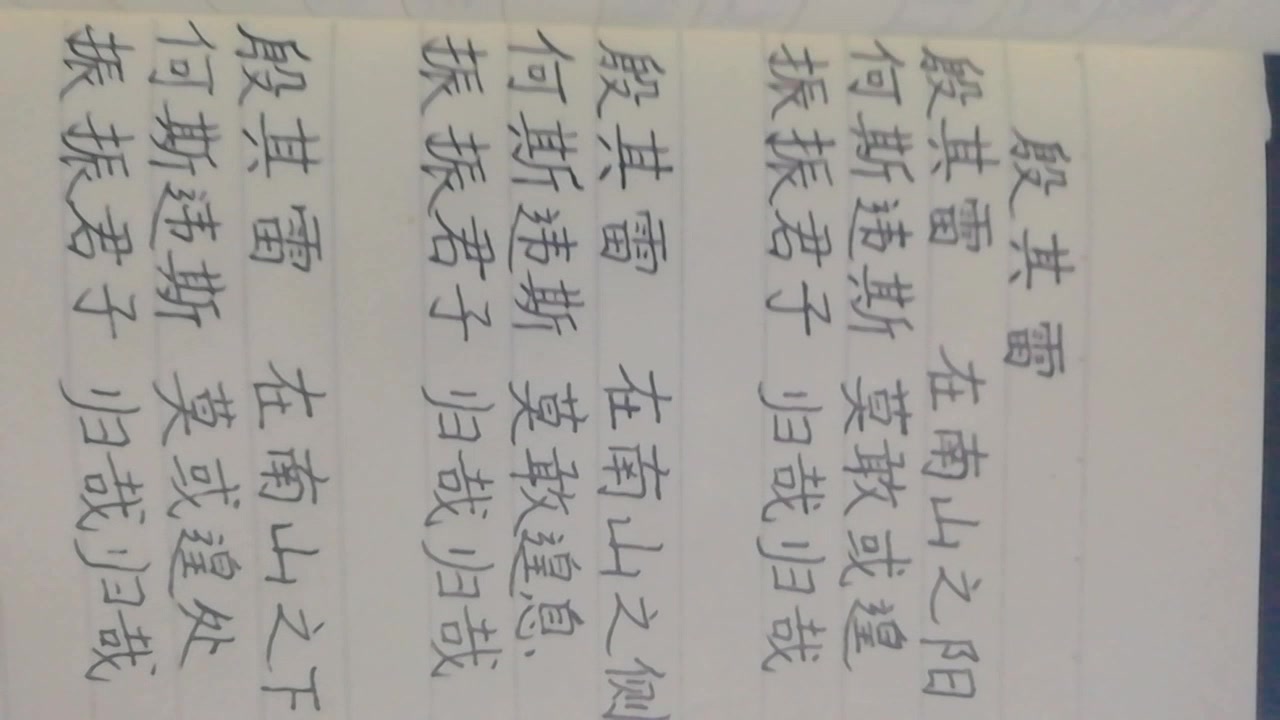 殷其雷
殷其雷 在南山之阳
何斯违斯 莫敢或遑
振振君子 归哉归哉
殷其雷 在南山之侧
何斯违斯 莫敢遑息
振振君子 归哉归哉
殷其雷 在南山之下
何斯违斯 莫或遑处
振振君子 归哉归哉